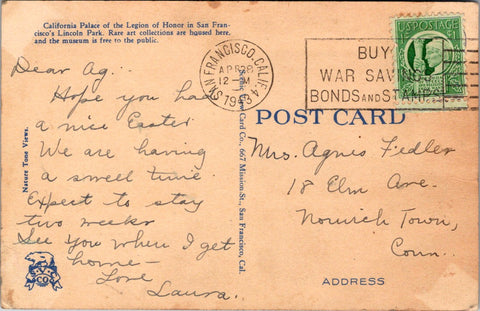 California Palace of the Legion of Honor in San Fran-
cisco's Lincoln Park. Rare art collections are housed here,
and the museum is free to the public.
Dear Ag:
Hope you had
a nice Easter
We are having
a sweet time.
Expect to stay
two weeks
See you when I get
home—
Love
Laura.
Nature Tone Views.
Scenic View Card Co., 667 Mission St., San Francisco, Cal.
SAN FRANCISCO, CALIF. 4
APR 28
12 - M
1943
BUY
WAR SAVINGS
BONDS AND STAMPS
U.S. POSTAGE
1¢
POST CARD
Mrs. Agnes Fedler
18 Elm Ave.
Norwich Town,
Conn.
ADDRESS
S. V.
CO